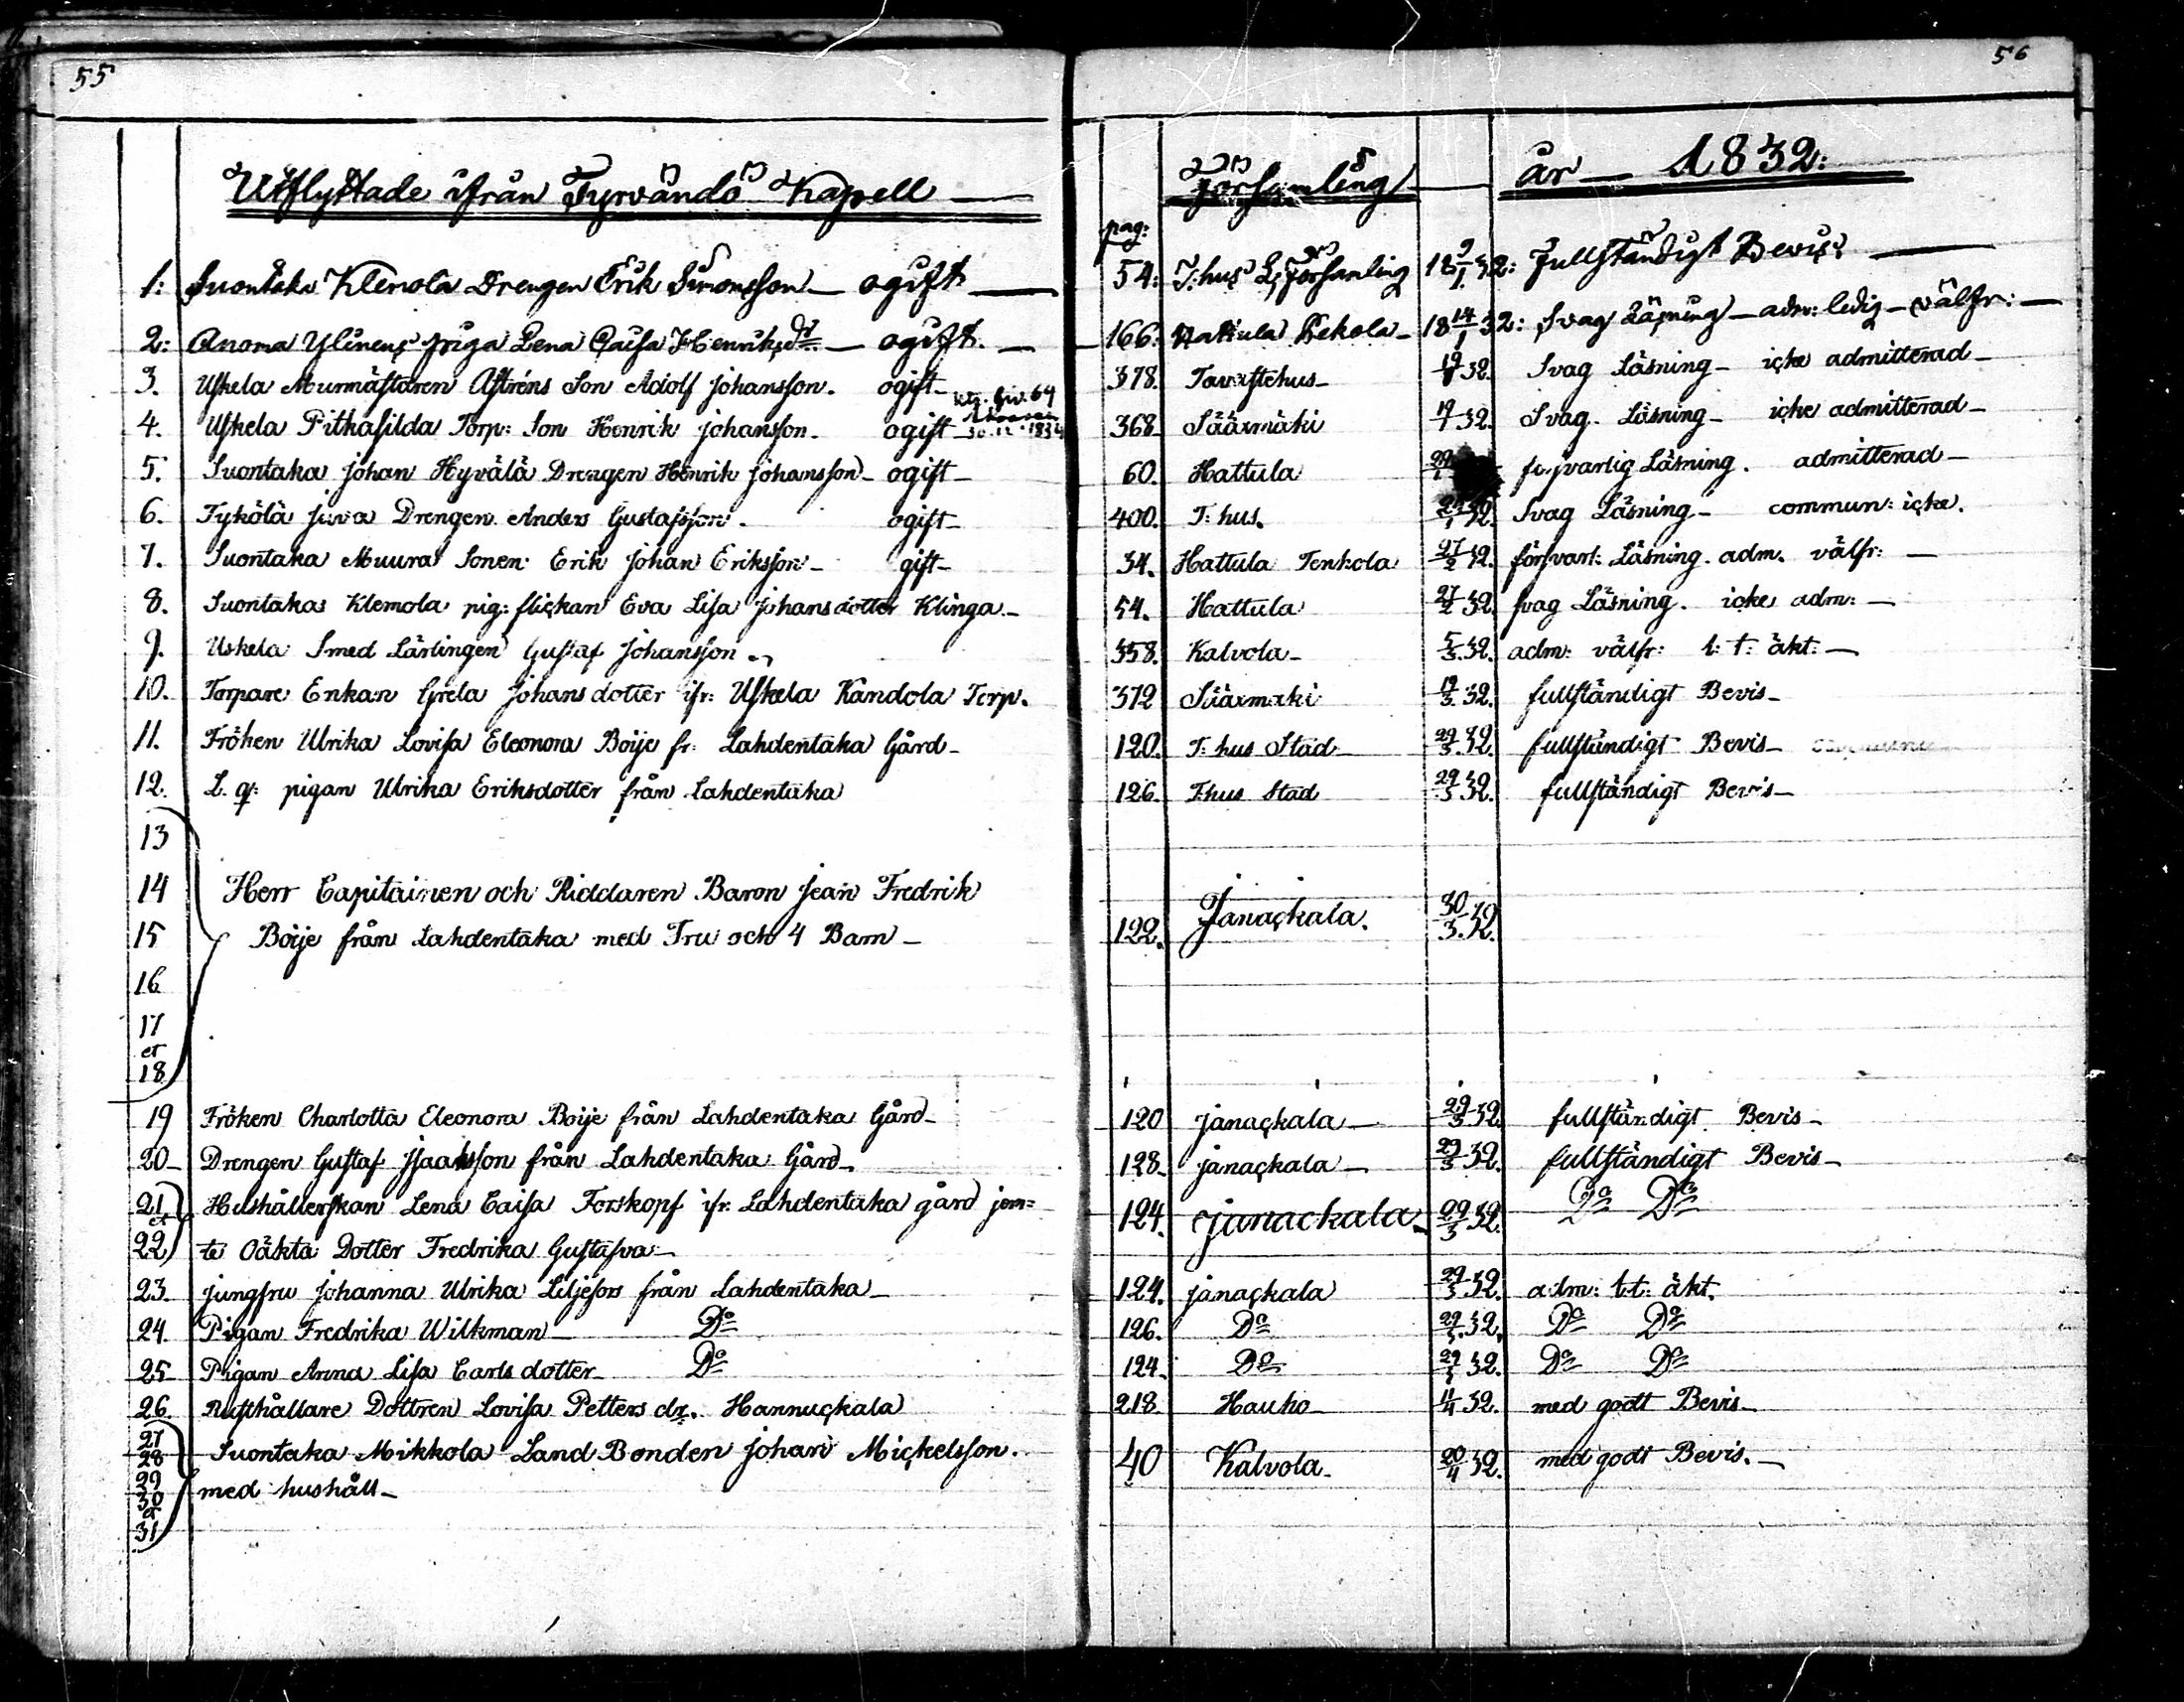 55
56
Utflyttade ifrån Tyrvändö Kapell — Församling — år — 1832:
pag:
1: Suontaka Klemola Drengen Erik Simonsson — ogift — 54: T:hus L: Församling 18 9/1 32: Fullständigt Bevis —
2: Anoma Ylinens piga Lena Caisa Henriksdr — ogift. — 166. Hattula Pekola — 18 14/1 32: Svag Läsning — adm: ledig — välfr: —
3. Uskela Murmästaren Astréns Son Adolf Johansson. ogift — 378. Tavastehus — 19/1 32. Svag Läsning — icke admitterad —
4. Uskela Pitkäsilda Torp: Son Henrik Johansson. ogift — 30.12.1834 368 Säärmäki 19/1 32. Svag Läsning — icke admitterad —
5. Suontaka Johan Hyvälä Drengen Henrik Johansson — ogift — 60. Hattula Läsning. admitterad —
6. Tykölä Juva Drengen Anders Gustafsson. ogift — 400. T: hus. 32. Svag Läsning — commun: icke.
7. Suontaka Muura Sonen Erik Johan Eriksson — gift — 34. Hattula Tenhola 27/2 32. försvarl: Läsning. adm. välfr: —
8. Suontaka Klemola pig: flickan Eva Lisa Johansdotter Klinga. — 54. Hattula 27/2 32. svag Läsning. icke adm: —
9. Uskela Smed Lärlingen Gustaf Johansson 358. Kalvola — 5/3 32. adm: välfr: l: t: äkt: —
10. Torpare Enkan Greta Johansdotter ifr: Uskela Kandola Torp. 372 Säärmäki 19/3 32. fullständigt Bevis —
11. Fröken Ulrika Lovisa Eleonora Boije fr: Lahdentaka Gård — 120. T: hus Stad — 29/3 32. fullständigt Bevis —
12. L. q: pigan Ulrika Eriksdotter från Lahdentaka 126. T:hus Stad 29/3 32. fullständigt Bevis —
13
14 Herr Capitainen och Riddaren Baron Jean Fredrik
15 Boije från Lahdentaka med Fru och 4 Barn — 122. Janackala. 30/3 32.
16
17
et
18
19 Fröken Charlotta Eleonora Boije från Lahdentaka Gård — 120 Janackala — 29/3 32. fullständigt Bevis —
20 Drengen Gustaf Isaaksson från Lahdentaka Gård — 128. Janackala — 29/3 32. fullständigt Bevis —
21 Hushållerskan Lena Caisa Forskopf ifr: Lahdentaka gård jem= 124. Janackala — 29/3 32. Do Do
et
22 te Oäkta Dotter Fredrika Gustafva —
23. Jungfru Johanna Ulrika Liljefors från Lahdentaka — 124. Janackala 29/3 32. adm: l:t: äkt.
24. Pigan Fredrika Wilkman — Do 126. Do 29/3 32. Do Do
25 Pigan Anna Lisa Carlsdotter — Do 124 Do 29/3 32. Do Do
26. Rusthållare Dottren Lovisa Petters dr. Hannuckala 218. Hauho — 11/4 32. med godt Bevis —
27
28 Suontaka Mikkola Land Bonden Johan Mickelsson. 40 Kalvola — 20/4 32. med godt Bevis. —
29
30 med hushåll —
et
31